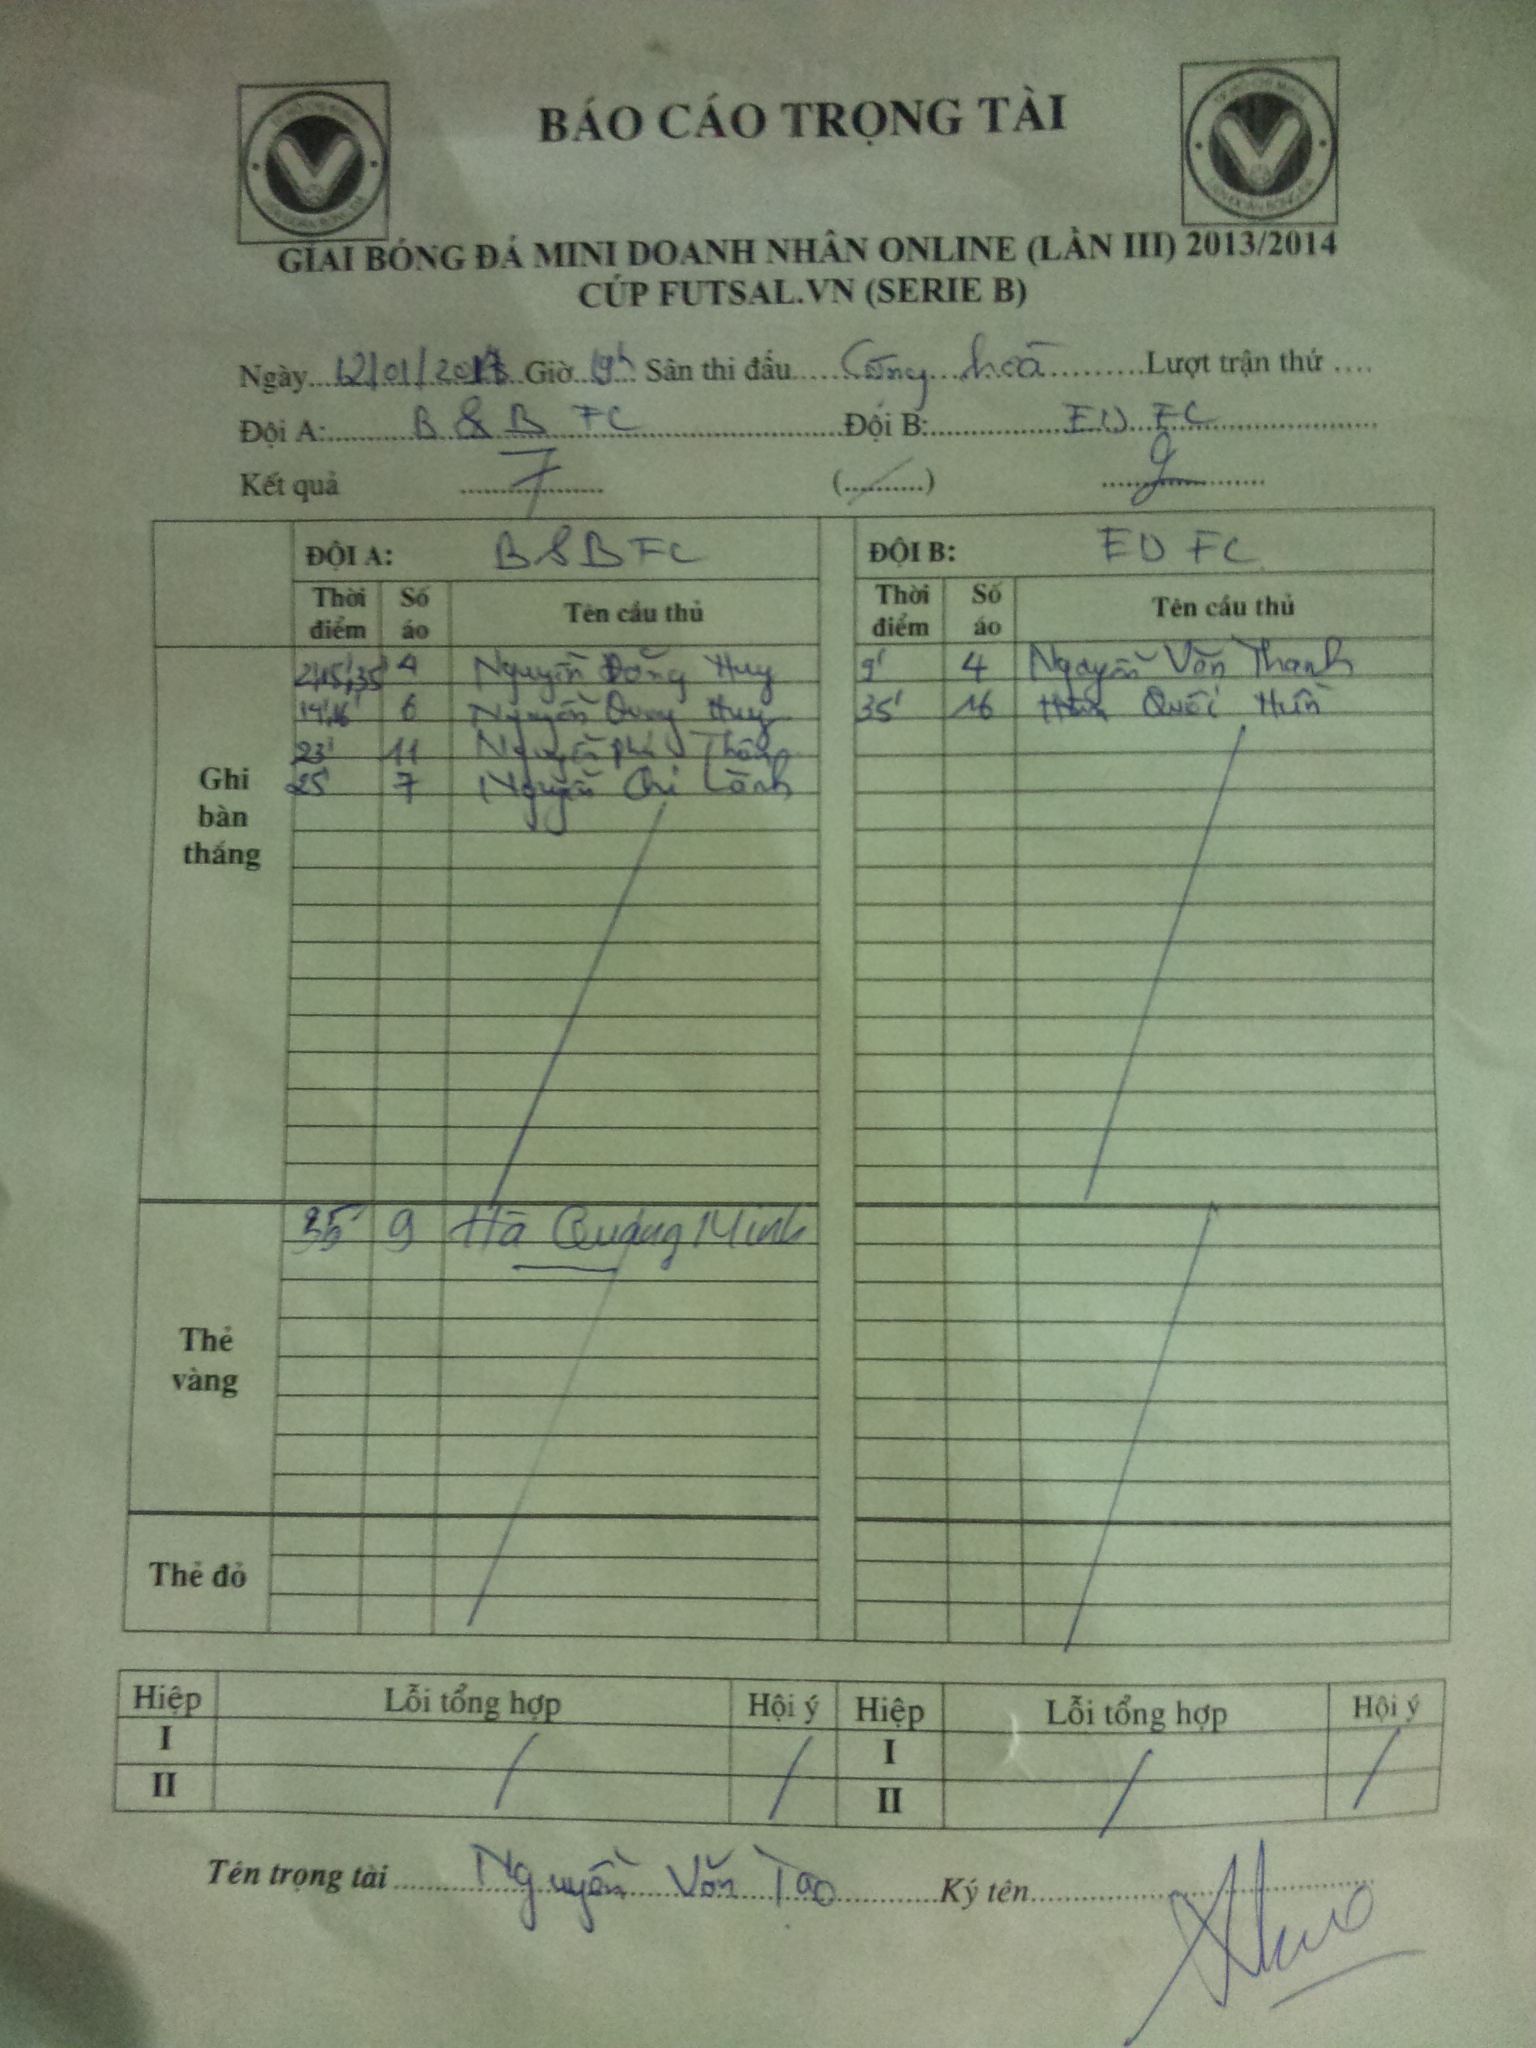 BÁO CÁO TRỌNG TÀI
GIẢI BÓNG ĐÁ MINI DOANH NHÂN ONLINE (LẦN III) 2013/2014
CÚP FUTSAL.VN (SERIE B)
Ngày 12/01/2013 Giờ 19h Sân thi đấu Cộng hoà Lượt trận thứ ....
Đội A: B&B FC Đội B: EU FC
Kết quả 7 (/) 2
ĐỘI A: B&B FC ĐỘI B: EU FC
Thời điểm Số áo Tên cầu thủ Thời điểm Số áo Tên cầu thủ
Ghi bàn thắng
2',15',35' 4 Nguyễn Đăng Huy 9' 4 Nguyễn Văn Thanh
14',16' 6 Nguyễn Quang Huy 35' 16 Quốc
23' 11 Nguyễn
25' 7 Nguyễn Chí Lành
Thẻ vàng
35' 9 Hà Quảng Minh
Thẻ đỏ
Hiệp Lỗi tổng hợp Hội ý Hiệp Lỗi tổng hợp Hội ý
I I
II II
Tên trọng tài Nguyễn Văn Tạo Ký tên